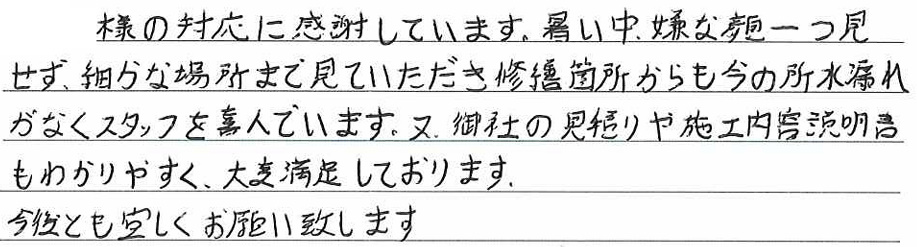 様の対応に感謝しています。暑い中、嫌な顔一つ見
せず、細かな場所まで見ていただき修繕箇所からも今の所水漏れ
がなくスタッフを喜んでいます。又、御社の見積りや施工内容説明書
もわかりやすく、大変満足しております。
今後とも宜しくお願い致します